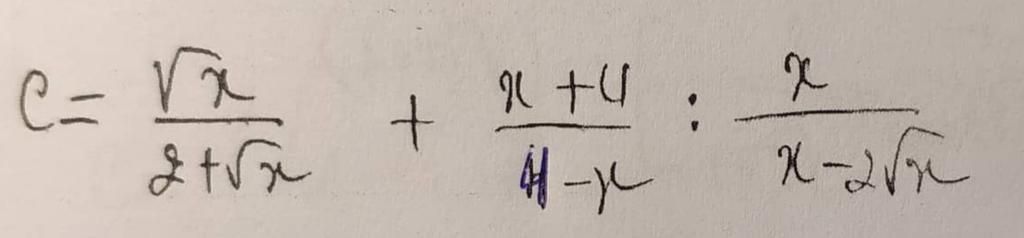 C = √x / (2 + √x) + (x + 4) / (4 - x) : x / (x - 2√x)